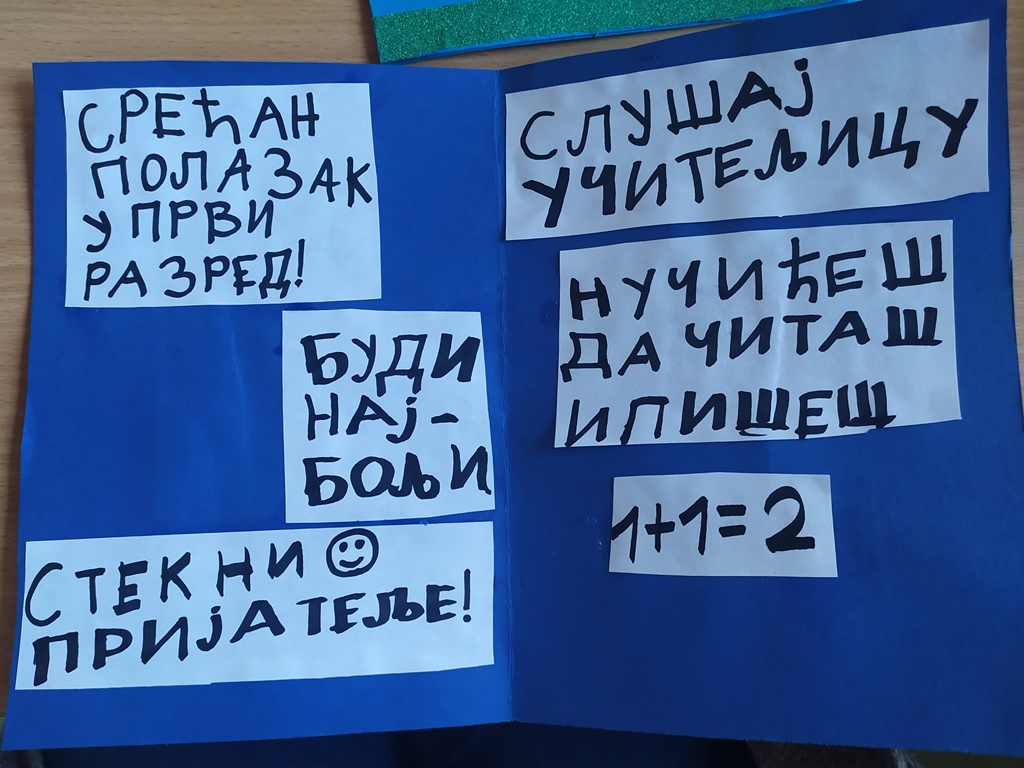 СРЕЋАН
ПОЛАЗАК
У ПРВИ
РАЗРЕД!
БУДИ
НАЈ-
БОЉИ
СТЕКНИ ☺
ПРИЈАТЕЉЕ!
СЛУШАЈ
УЧИТЕЉИЦУ
НУЧИЋЕШ
ДА ЧИТАШ
И ПИШЕШ
1+1=2